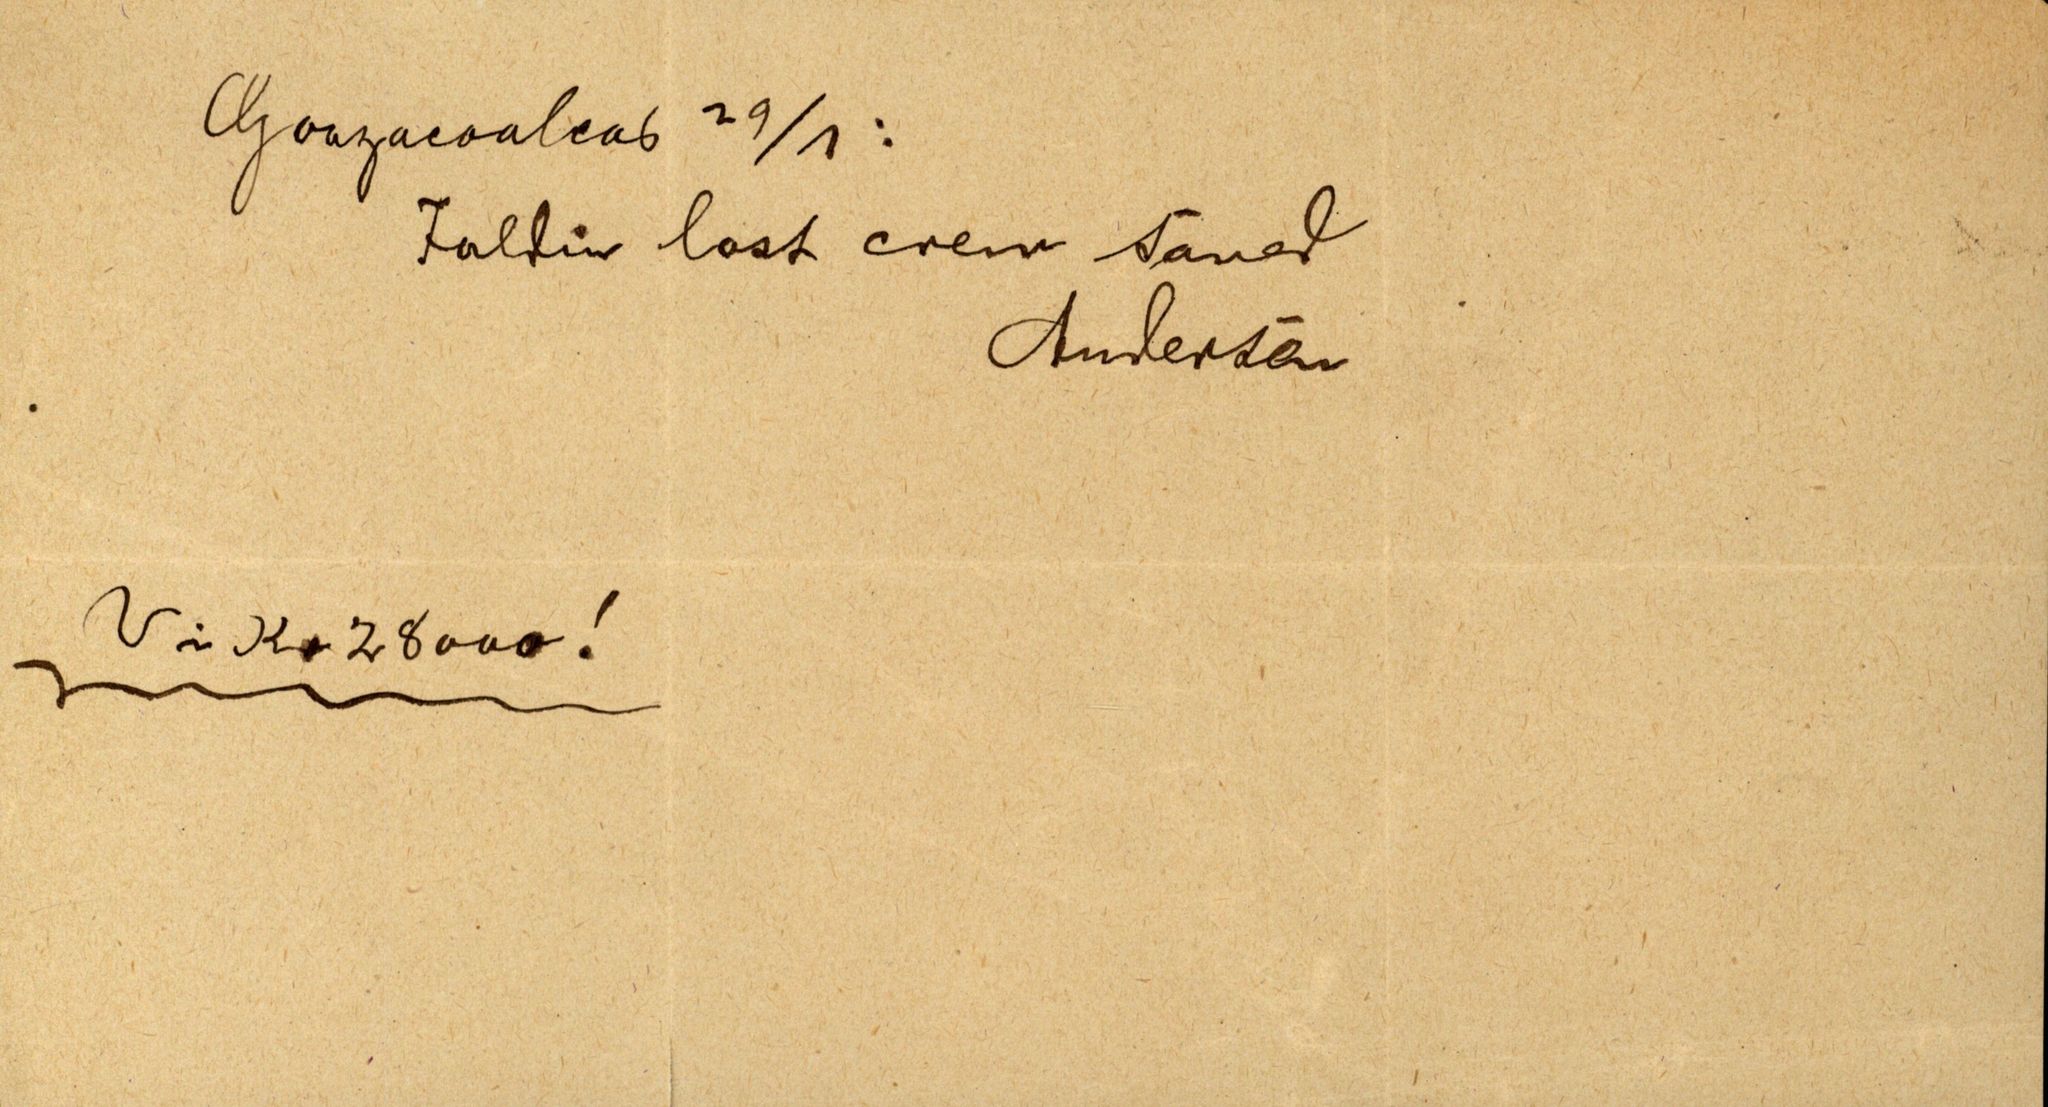 Goazacoalcos 29/1:
Faldin lost crew saved
Andersen
Vi Kr 28000!